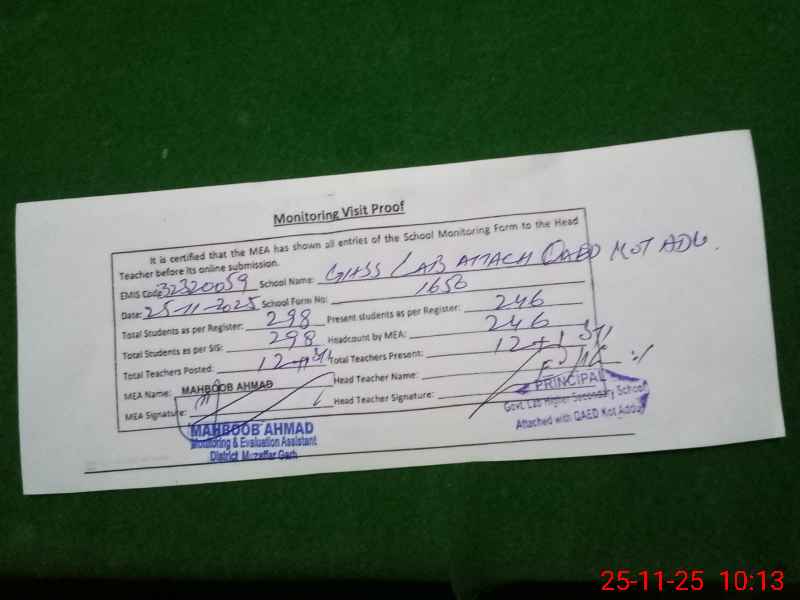 Monitoring Visit Proof
It is certified that the MEA has shown all entries of the School Monitoring Form to the Head
Teacher before its online submission.
EMIS Code: 32320059 School Name: GHSS LAB ATTACH QAED KOT ADU.
Date: 25-11-2025 School Form No: 1656
Total Students as per Register: 298 Present students as per Register: 246
Total Students as per SIS: 298 Headcount by MEA: 246
Total Teachers Posted: 12+1 Total Teachers Present: 12+1
MEA Name: MAHBOOB AHMAD Head Teacher Name:
MEA Signature: Head Teacher Signature:
MAHBOOB AHMAD
Monitoring & Evaluation Assistant
District Muzaffar Garh
PRINCIPAL
Govt. Lab Higher Secondary School
Attached with QAED Kot Addu
25-11-25 10:13